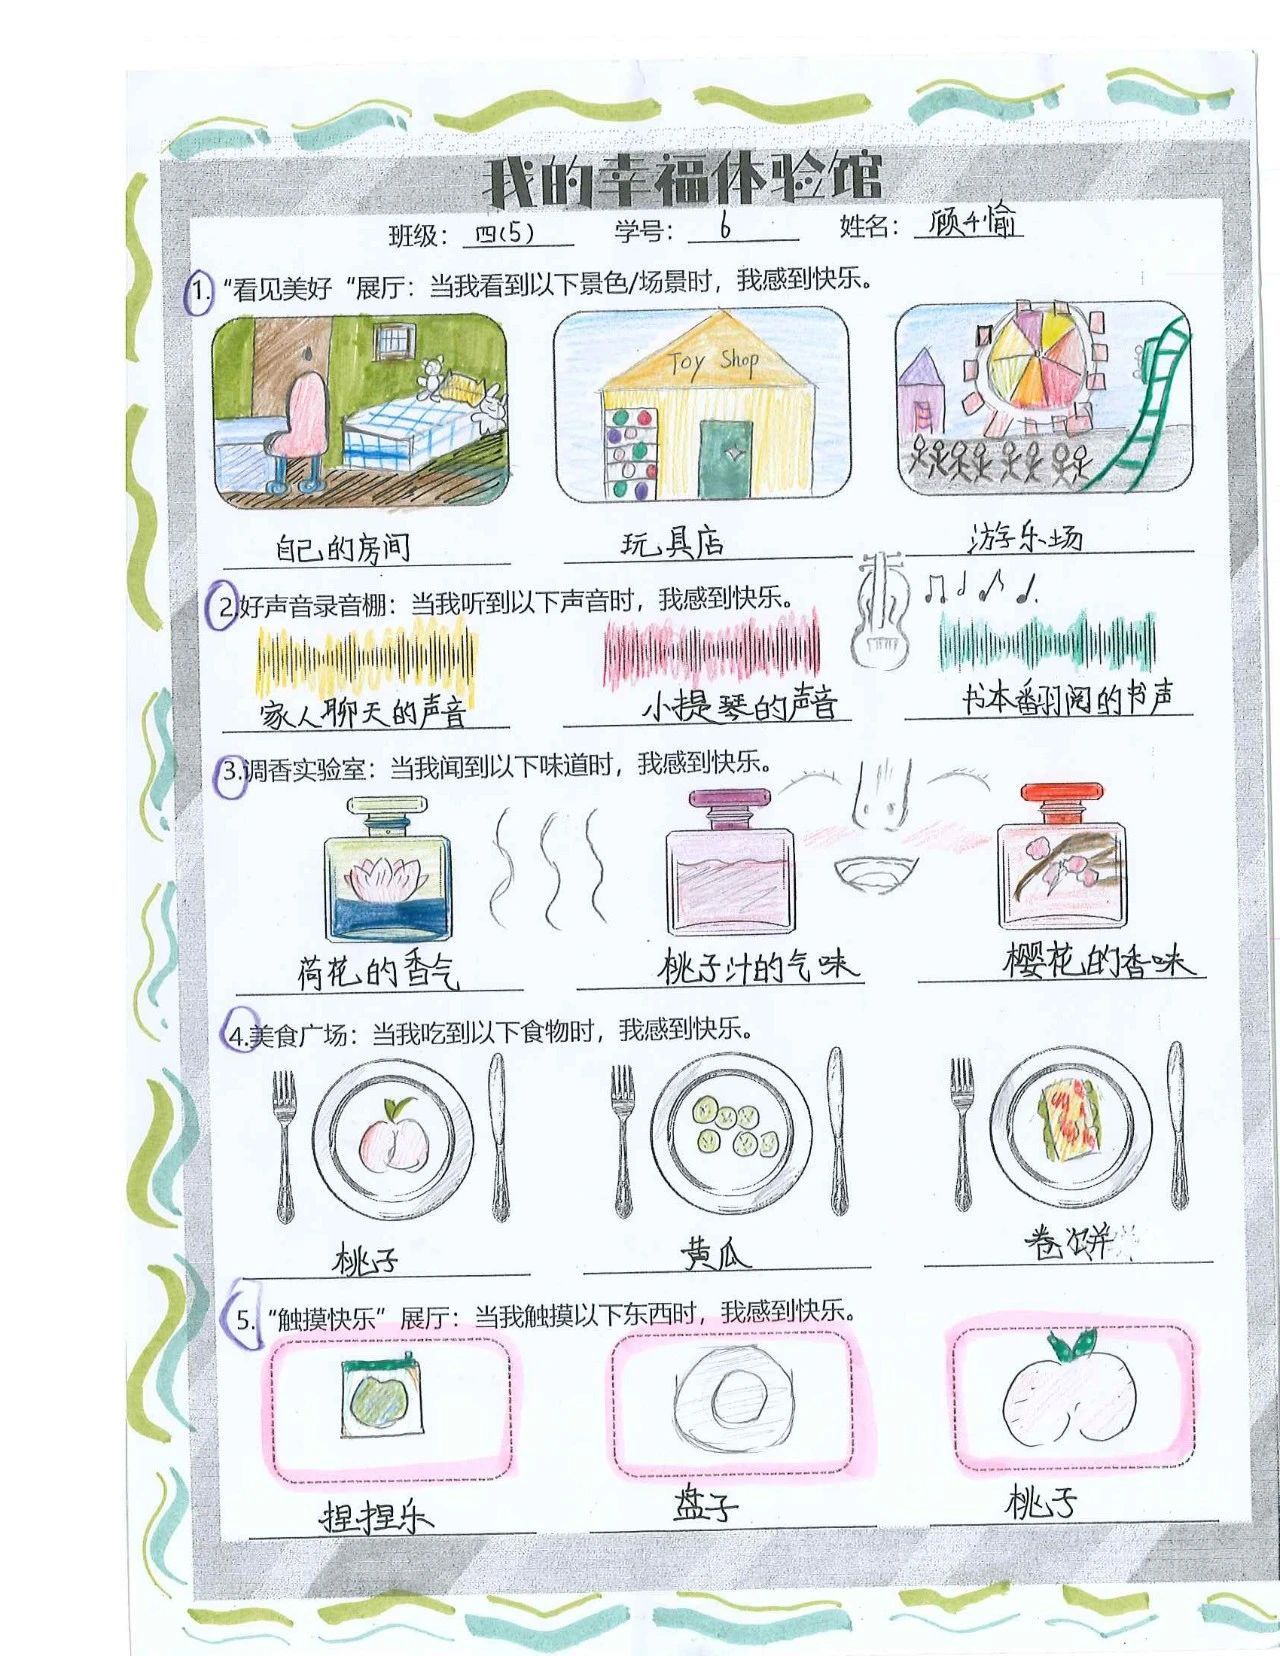 我的幸福体验馆
班级：四(5) 学号：6 姓名：顾千愉
1. “看见美好 “展厅：当我看到以下景色/场景时，我感到快乐。
Toy Shop
自己的房间 玩具店 游乐场
2.好声音录音棚：当我听到以下声音时，我感到快乐。
家人聊天的声音 小提琴的声音 书本翻阅的书声
3.调香实验室：当我闻到以下味道时，我感到快乐。
荷花的香气 桃子汁的气味 樱花的香味
4.美食广场：当我吃到以下食物时，我感到快乐。
桃子 黄瓜 卷饼
5. “触摸快乐” 展厅：当我触摸以下东西时，我感到快乐。
捏捏乐 盘子 桃子